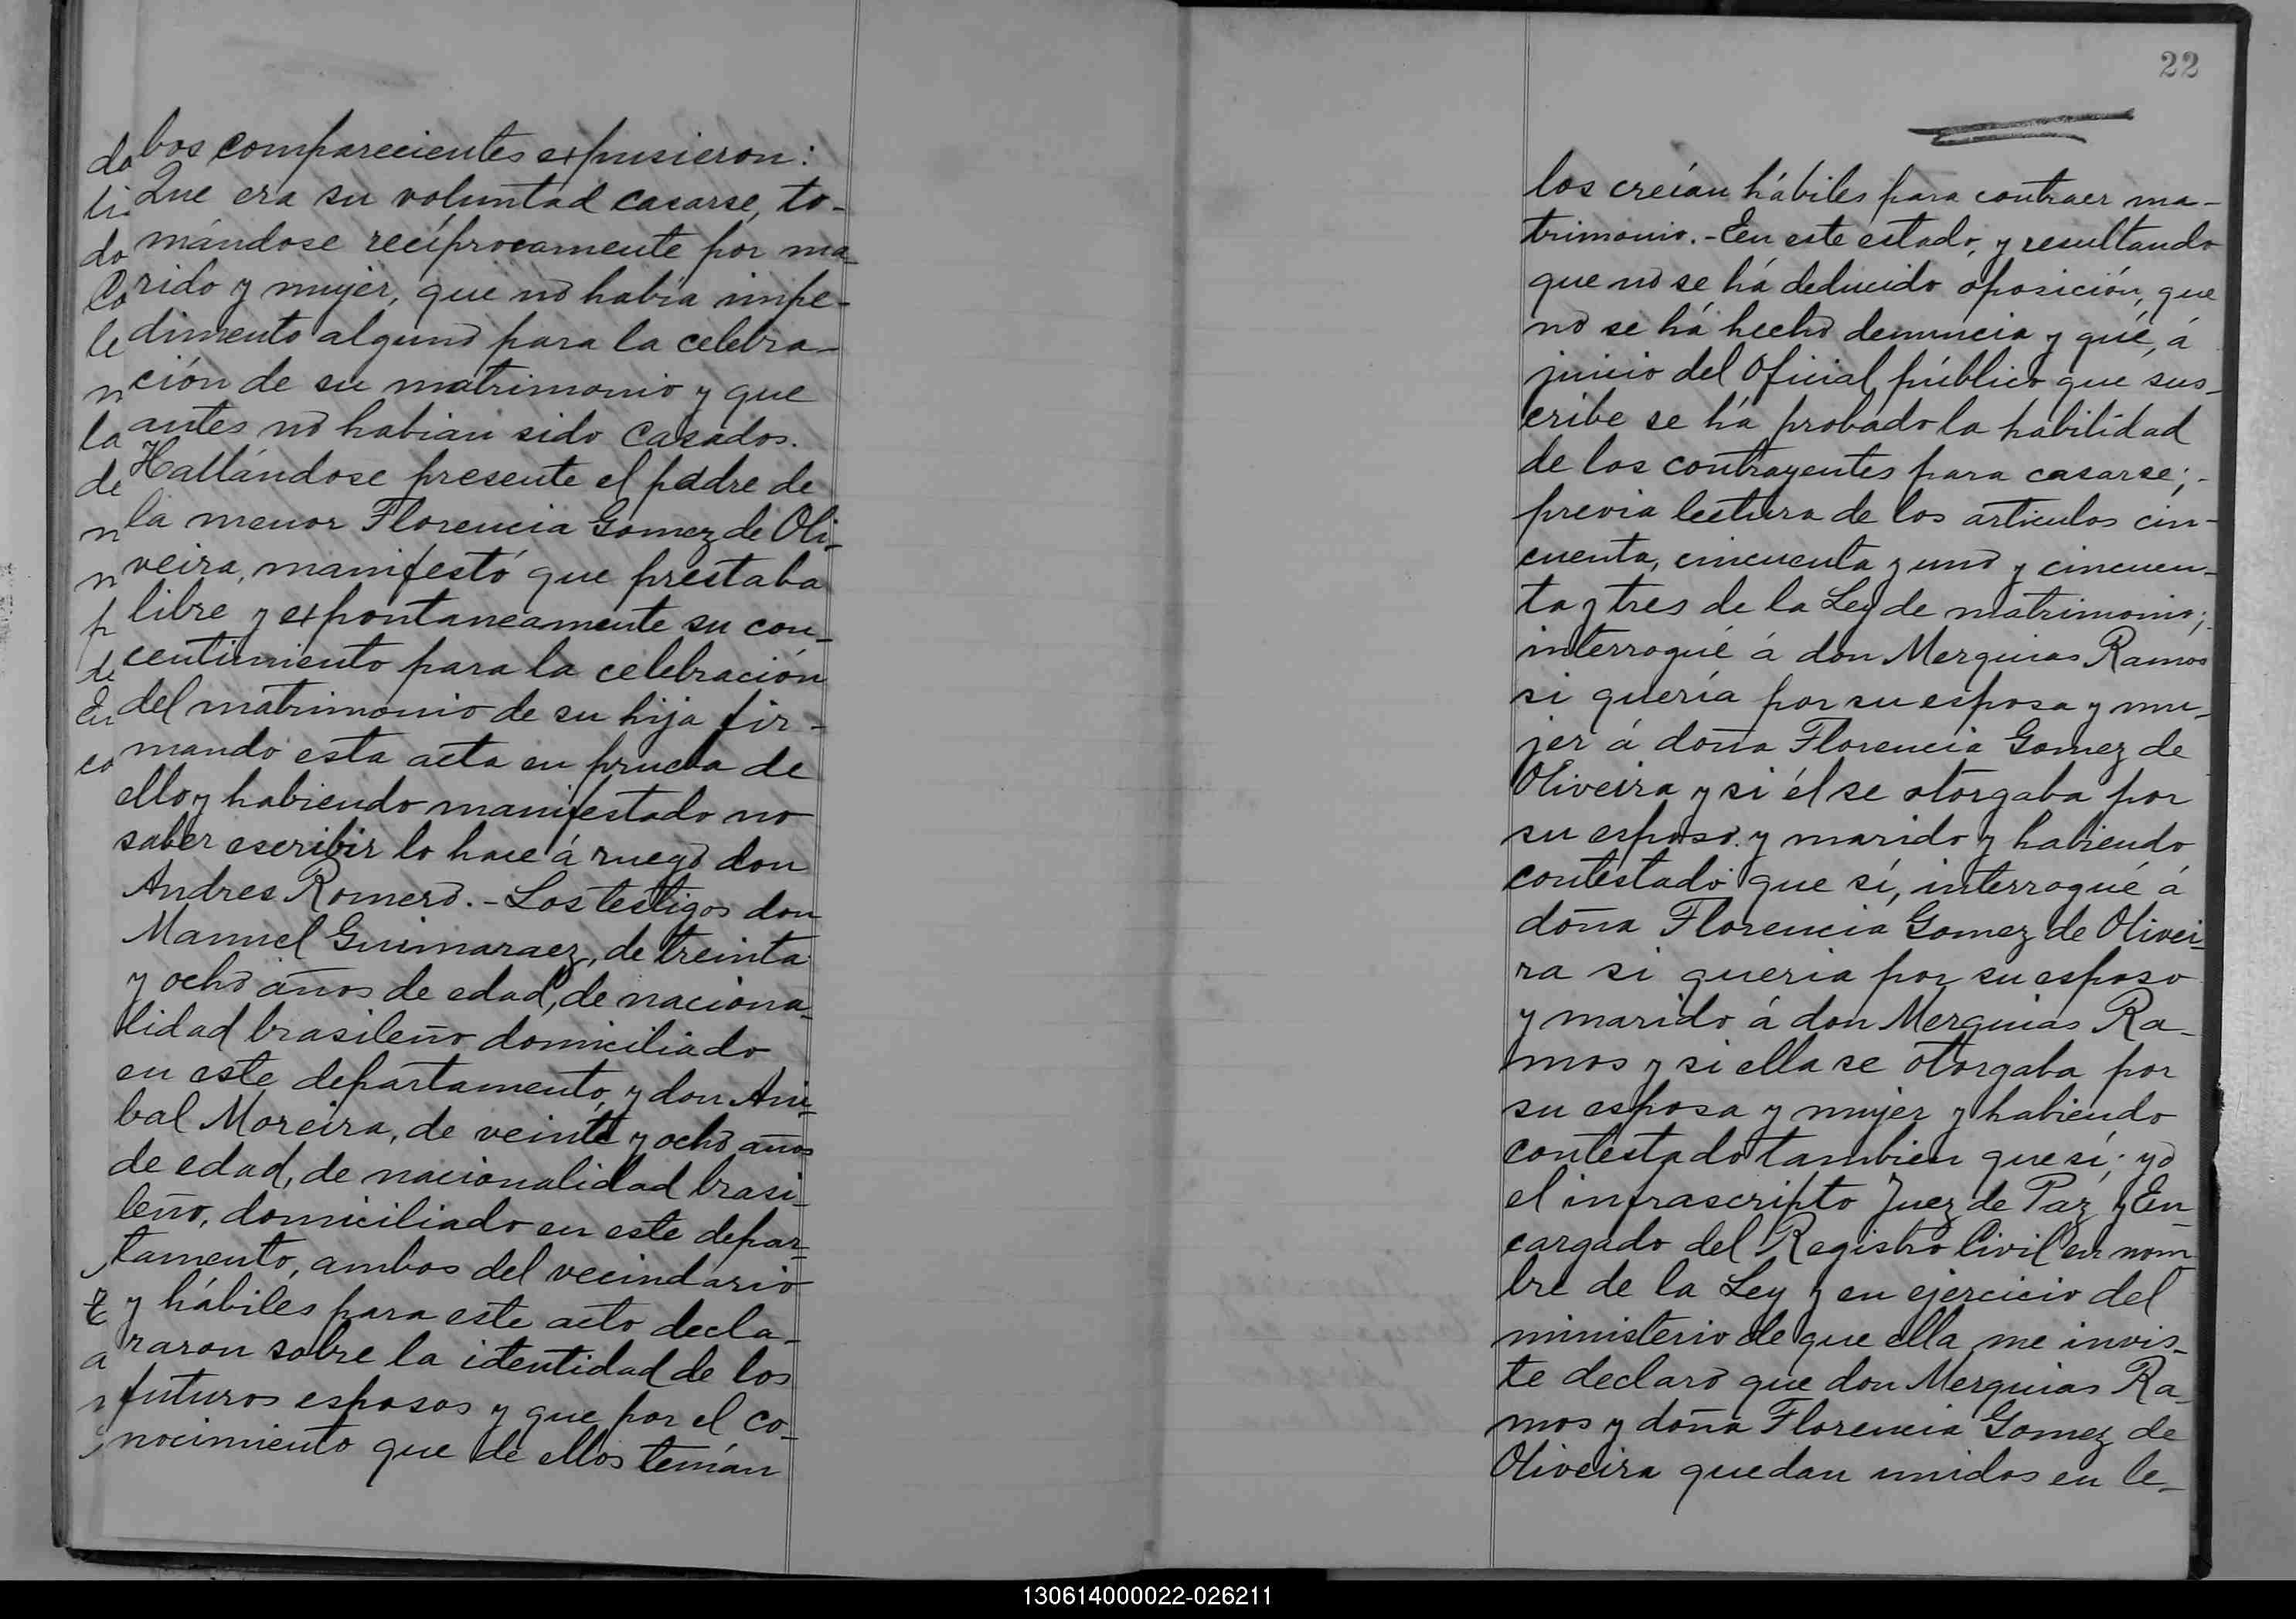 bos comparecientes expusieron:
Que era su voluntad casarse, to-
mándose recíprocamente por ma-
rido y mujer, que no habia impe-
dimento alguno para la celebra-
ción de su matrimonio y que
antes no habian sido casados.
Hallándose presente el padre de
la menor Florencia Gomez de Oli-
veira, manifestó que prestaba
libre y expontaneamente su con-
centimiento para la celebración
del matrimonio de su hija fir-
mando esta acta en prueba de
ello y habiendo manifestado no
saber escribir lo hace á ruego don
Andres Romero.- Los testigos don
Manuel Guimaraez, de treinta
y ocho años de edad, de naciona-
lidad brasileño domiciliado
en este departamento, y don Ani-
bal Moreira, de veinte y ocho años
de edad, de nacionalidad brasi-
leño, domiciliado en este depar-
tamento, ambos del vecindario
y hábiles para este acto decla-
raron sobre la identidad de los
futuros esposos y que por el co-
nocimiento que de ellos tenían
22
los creían hábiles para contraer ma-
trimonio.- En este estado, y resultando
que no se há deducido oposición, que
no se há hecho denuncia y que, á
juicio del Oficial público que sus-
cribe se há probado la habilidad
de los contrayentes para casarse;-
previa lectura de los articulos cin-
cuenta, cincuenta y uno y cincuen-
ta y tres de la Ley de matrimonio;
interrogué á don Merquias Ramos
si quería por su esposa y mu-
jer á doña Florencia Gomez de
Oliveira y si él se otorgaba por
su esposo y marido y habiendo
contestado que sí, interrogué á
doña Florencia Gomez de Olivei-
ra si queria por su esposo
y marido á don Merquias Ra-
mos y si ella se otorgaba por
su esposa y mujer y habiendo
contestado tambien que sí; yo
el infrascripto Juez de Paz y En-
cargado del Registro Civil en nom-
bre de la Ley y en ejercicio del
ministerio de que ella me invis-
te declaro que don Merquias Ra-
mos y doña Florencia Gomez de
Oliveira quedan unidos en le-
130614000022-026211